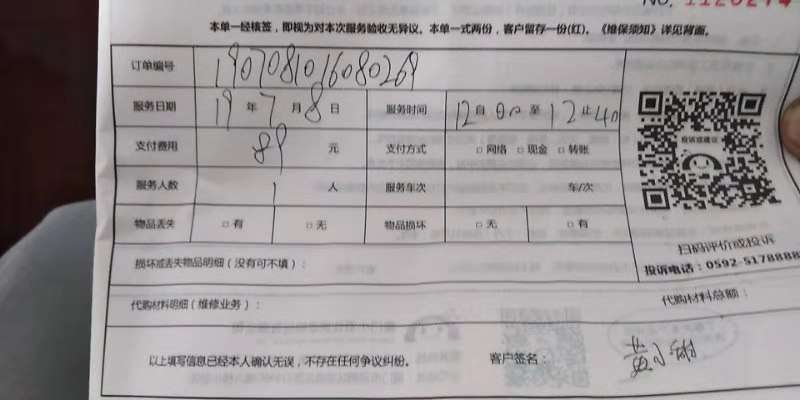 No. 1120274
本单一经核签，即视为对本次服务验收无异议。本单一式两份，客户留存一份(红)。《维保须知》详见背面。
订单编号 1907081016080269
服务日期 19年7月8日 服务时间 12自00至12止40
支付费用 89元 支付方式 □网络 □现金 □转账
服务人数 1人 服务车次 车/次
物品丢失 □有 □无 物品损坏 □无 □有
投诉或建议
扫码评价或投诉
投诉电话：0592-5178888
损坏或丢失物品明细（没有可不填）：
代购材料明细（维修业务）： 代购材料总额：
以上填写信息已经本人确认无误，不存在任何争议纠纷。 客户签名：